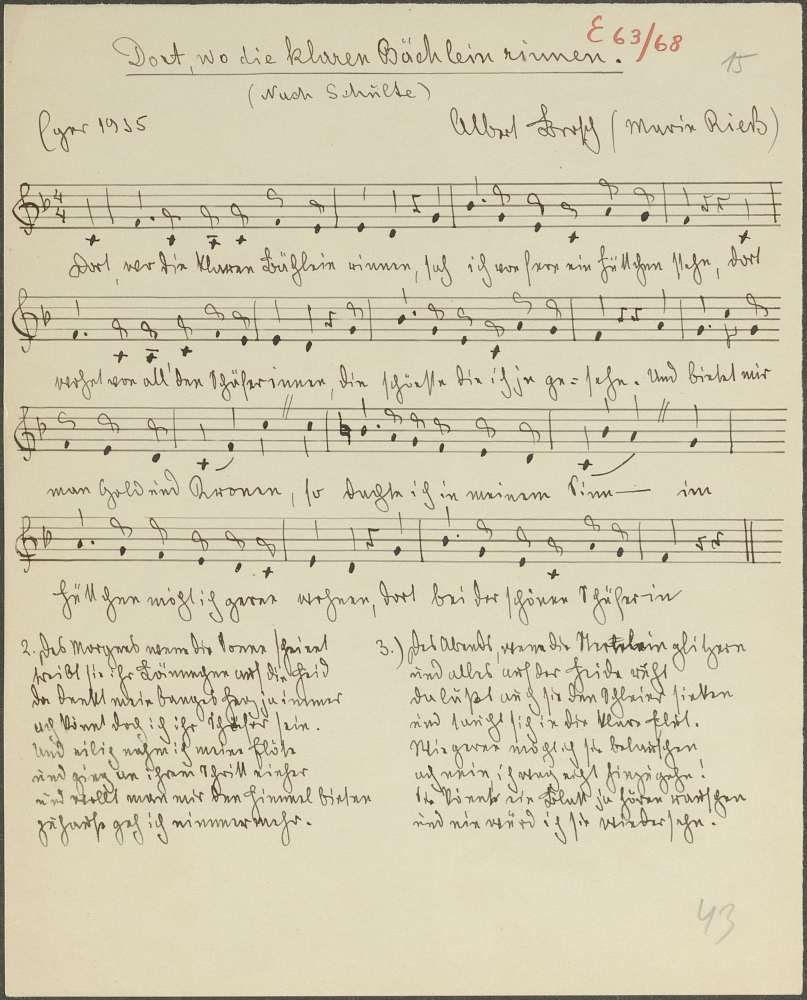 E 63/68
15
Dort, wo die klaren Bächlein rinnen.
(Nach Schulte)
Eger 1935
Albert Brosch (Marie Rieß)
4
4
Dort, wo die klaren Bächlein rinnen, sah ich von fern ein Hüttchen stehn, dort
wohnt von all' den Schäferinnen, die schönste die ich je ge=sehn. Und bietet mir
man Gold und Kronen, so dachte ich in meinem Sinn — im
Hüttchen möcht ich gerne wohnen, dort bei der schönen Schäferin
2. Des Morgens wenn die Sonne scheint
treibt sie ihr Lämmchen auf die Heid
da denkt mein banges Herz ja immer
ach könnt doch ich ihr Schäfer sein.
Und eilig nahm ich meine Flöte
und ging an ihrem Schritt einher
und wollt man mir den Himmel bieten
zuhause geh ich nimmermehr.
3.) Des Abends, wenn die Sternlein glitzern
und alles auf der Heide ruht
da lüßt auch sie den Schleier sinken
und taucht sich in die klare Flut.
Wie gerne möcht ich sie belauschen
ach nein, ich wag nicht hinzugehn!
Sie könnte ein Blatt ja hören rauschen
und nie würd ich sie wiedersehn.
43